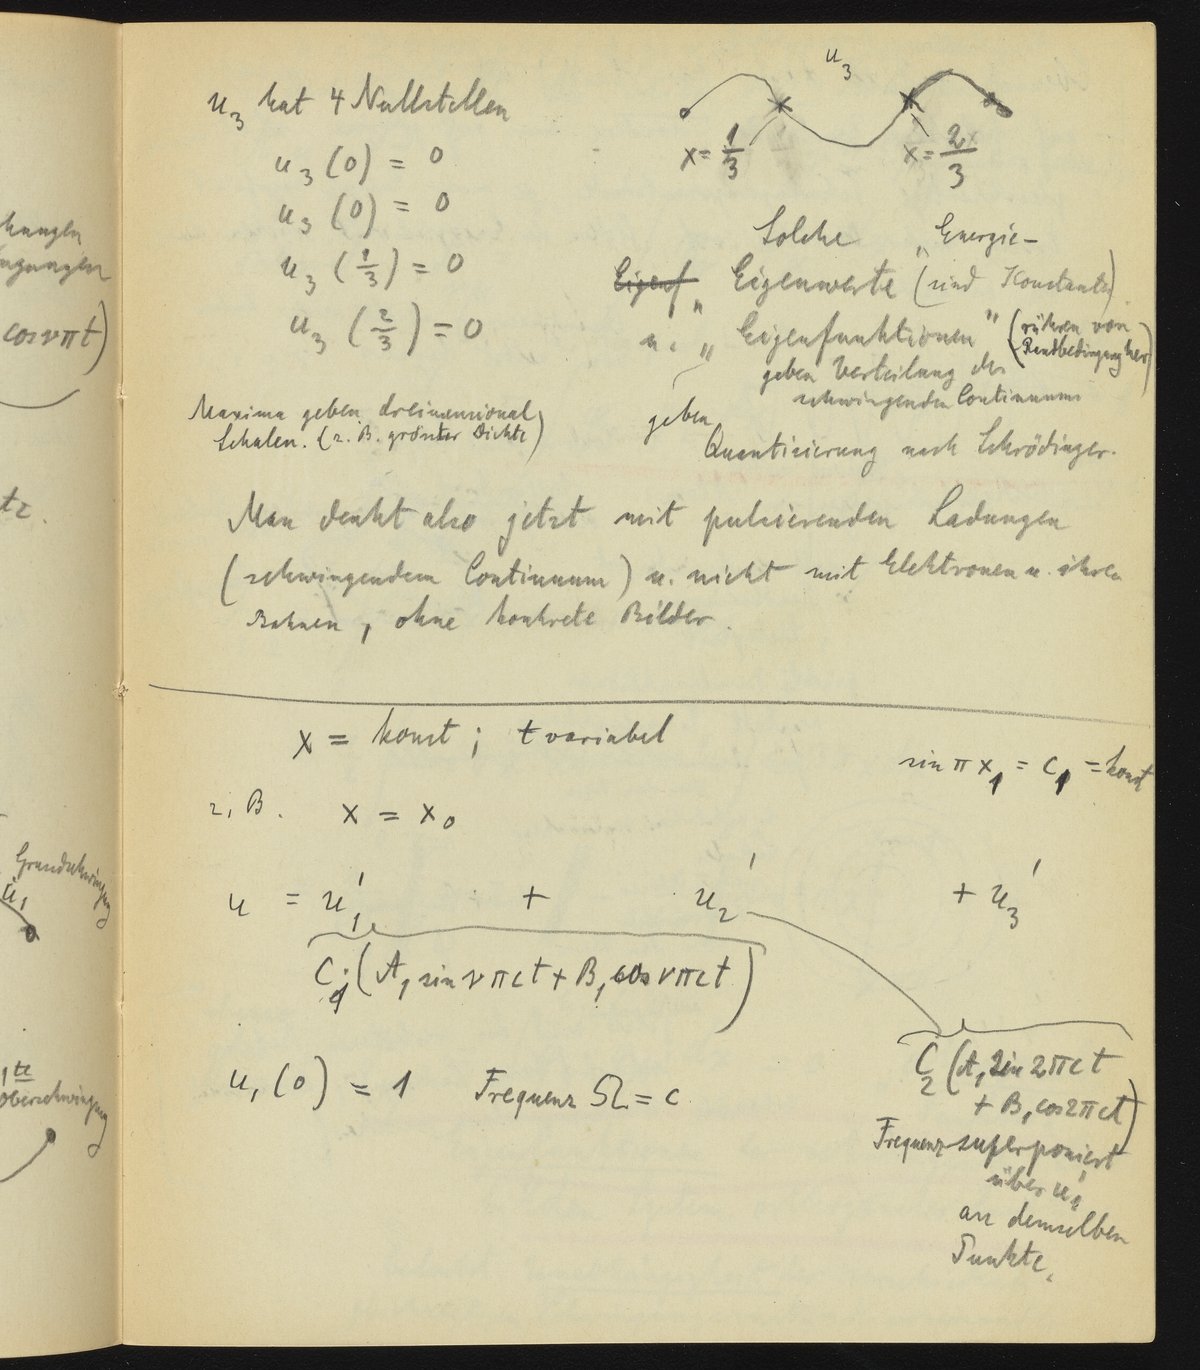 hungen
ngungen
cos νπt)
te.
Grundschwingung
u₁
1te
Oberschwingung
u₃ hat 4 Nullstellen
u₃ (0) = 0
u₃ (0) = 0
u₃ (1/3) = 0
u₃ (2/3) = 0
Maxima geben dreimensional
Schalen. (z. B. grösster Dichte)
u₃
x = 1/3
x = 2/3
Solche „Energie-
Eigenf „ Eigenwerte (sind Konstante)
u. „ Eigenfunktionen" (rühren von
Randbedingung her)
geben Verteilung des
schwingenden Continuums
geben
Quantisierung nach Schrödinger.
Man denkt also jetzt mit pulsierenden Ladungen
(schwingendem Continuum) u. nicht mit Elektronen u. ihren
Bahnen, ohne konkrete Bilder.
x = konst ; t variabel
sin π x₁ = c₁ = konst
z. B. x = x₀
u = u₁' + u₂' + u₃'
C₁ (A₁ sin νπct + B₁ cos νπct)
C₂ (A₁ sin 2πct
+ B₁ cos 2πct)
u₁ (0) = 1 Frequenz Ω = c
Frequenz superponiert
über u₁'
an demselben
Punkte.